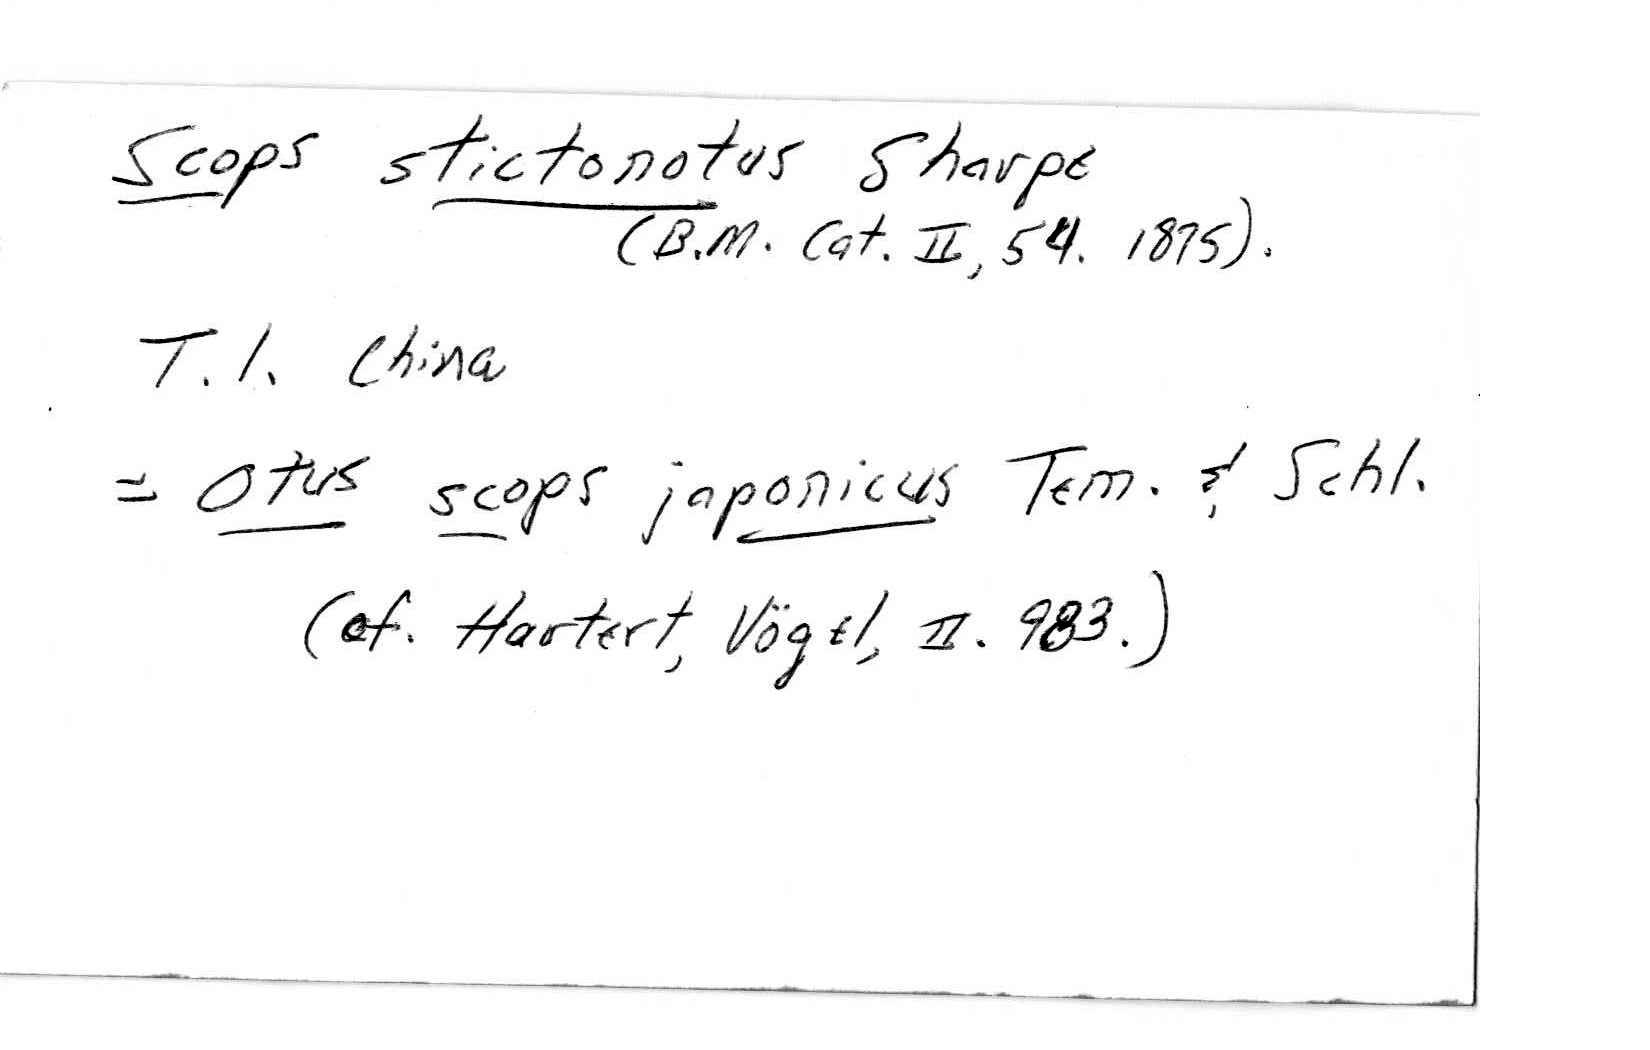 Scops stictonotus Sharpe
(B.M. Cat. II, 54. 1875).
T.l. China
= Otus scops japonicus Tem. & Schl.
(cf. Hartert, Vögel, II. 983.)